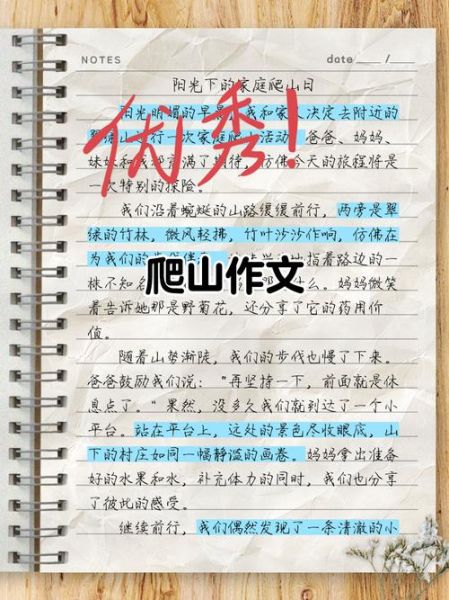 NOTES
date / /
阳光下的家庭爬山日
阳光明媚的早晨，我和家人决定去附近的
山进行一次家庭爬山活动。爸爸、妈妈、
妹妹和我都充满了期待，仿佛今天的旅程将是
一次特别的探险。
优秀！
我们沿着蜿蜒的山路缓缓前行，两旁是翠
绿的竹林，微风轻拂，竹叶沙沙作响，仿佛在
为我们的指着路边的
爬山作文
一株不知什么。妈妈微笑
着告诉她那是野菊花，还分享了它的药用价
值。
随着山势渐陡，我们的步伐也慢了下来。
爸爸鼓励我们说："再坚持一下，前面就是休
息点了。"果然，没多久我们就到达了一个小
平台。站在平台上，远处的景色尽收眼底，山
下的村庄如同一幅静谧的画卷。妈妈拿出准备
好的水果和水，补充体力的同时，我们也分享
了彼此的感受。
继续前行，我们偶然发现了一条清澈的小